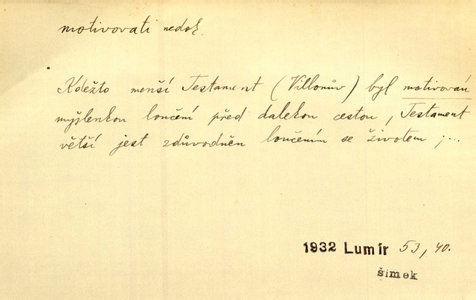 motivovati nedok.
Kdežto menší Testament (Villonův) byl motivován
myšlenkou loučení před dalekou cestou, Testament
větší jest zdůvodněn loučením se životem ;...
1932 Lumír 53, 40.
šimek